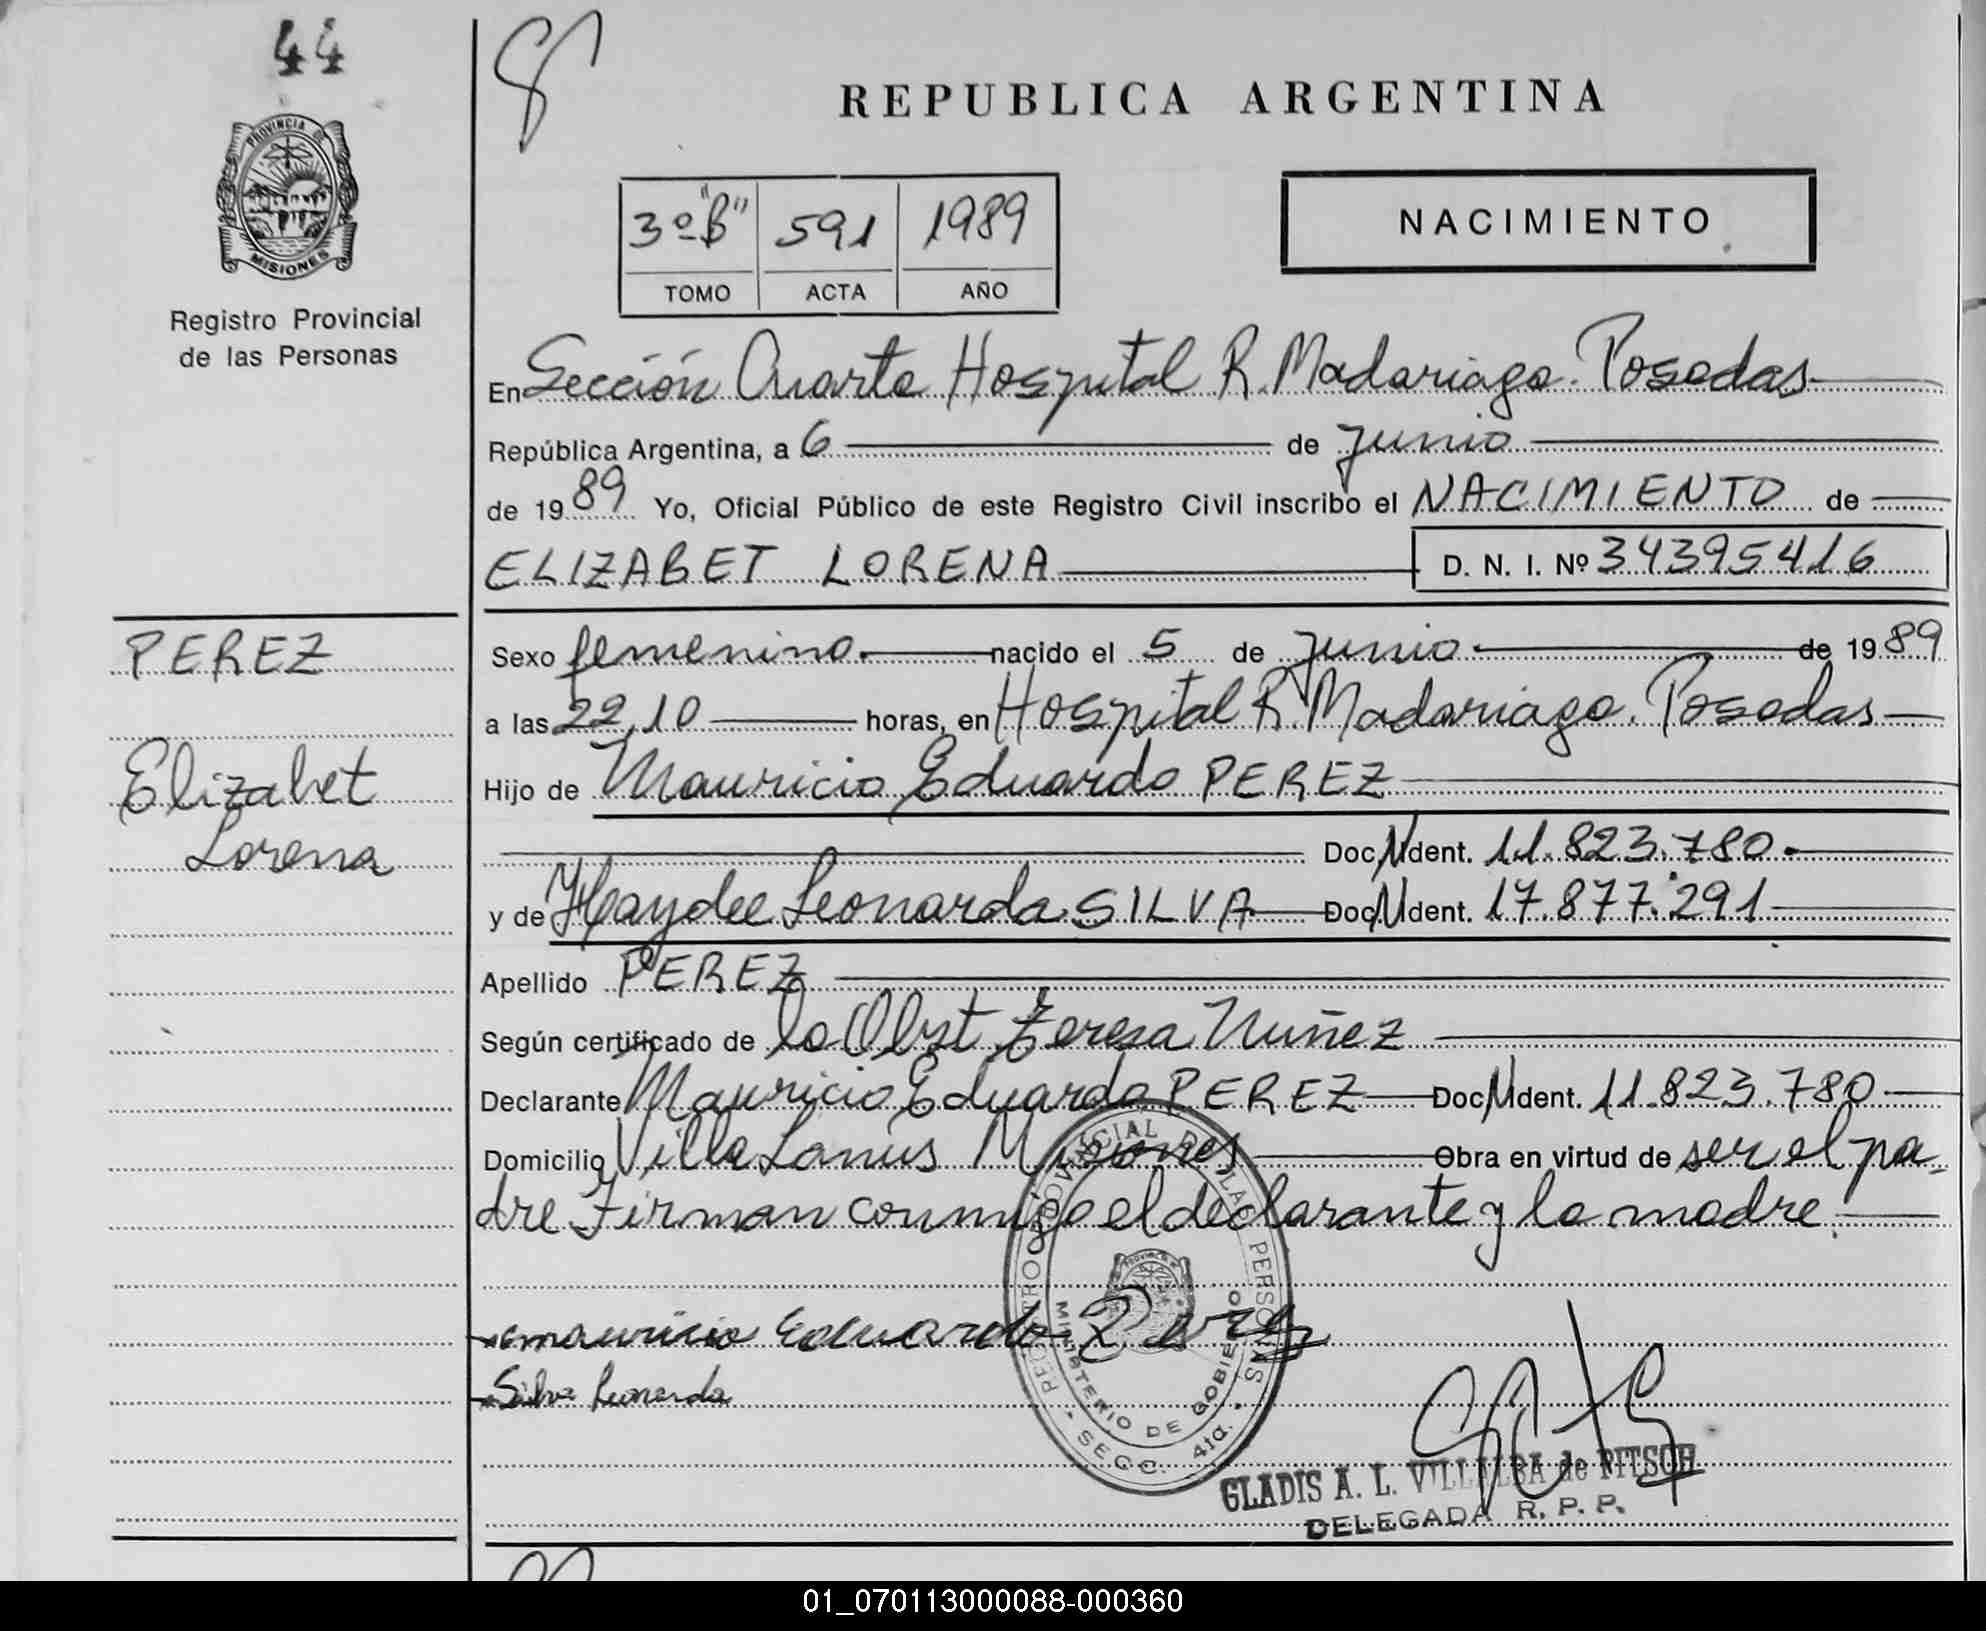 44
REPUBLICA ARGENTINA
PROVINCIA DE
MISIONES
Registro Provincial
de las Personas
3º "B" 591 1989
TOMO ACTA AÑO
NACIMIENTO
En Sección Cuarta Hospital R. Madariaga. Posadas
República Argentina, a 6 de Junio
de 1989 Yo, Oficial Público de este Registro Civil inscribo el NACIMIENTO de
ELIZABET LORENA D. N. I. Nº 34395416
PEREZ
Elizabet
Lorena
Sexo femenino. nacido el 5 de Junio de 1989
a las 22,10 horas, en Hospital R. Madariaga. Posadas
Hijo de Mauricio Eduardo PEREZ
Doc. Ident. 11.823.780.
y de Haydee Leonarda SILVA Doc. Ident. 17.877.291
Apellido PEREZ
Según certificado de la Obst Teresa Nuñez
Declarante Mauricio Eduardo PEREZ Doc. Ident. 11.823.780
Domicilio Villa Lanus Misiones Obra en virtud de ser el pa-
dre Firman conmigo el declarante y la madre.
mauricio Eduardo Perez
Silva Leonarda
REGISTRO PROVINCIAL DE LAS PERSONAS
MINISTERIO DE GOBIERNO
SECC. 4ta.
GLADIS A. L. VILLALBA de PITSCH
DELEGADA R. P. P.
01_070113000088-000360